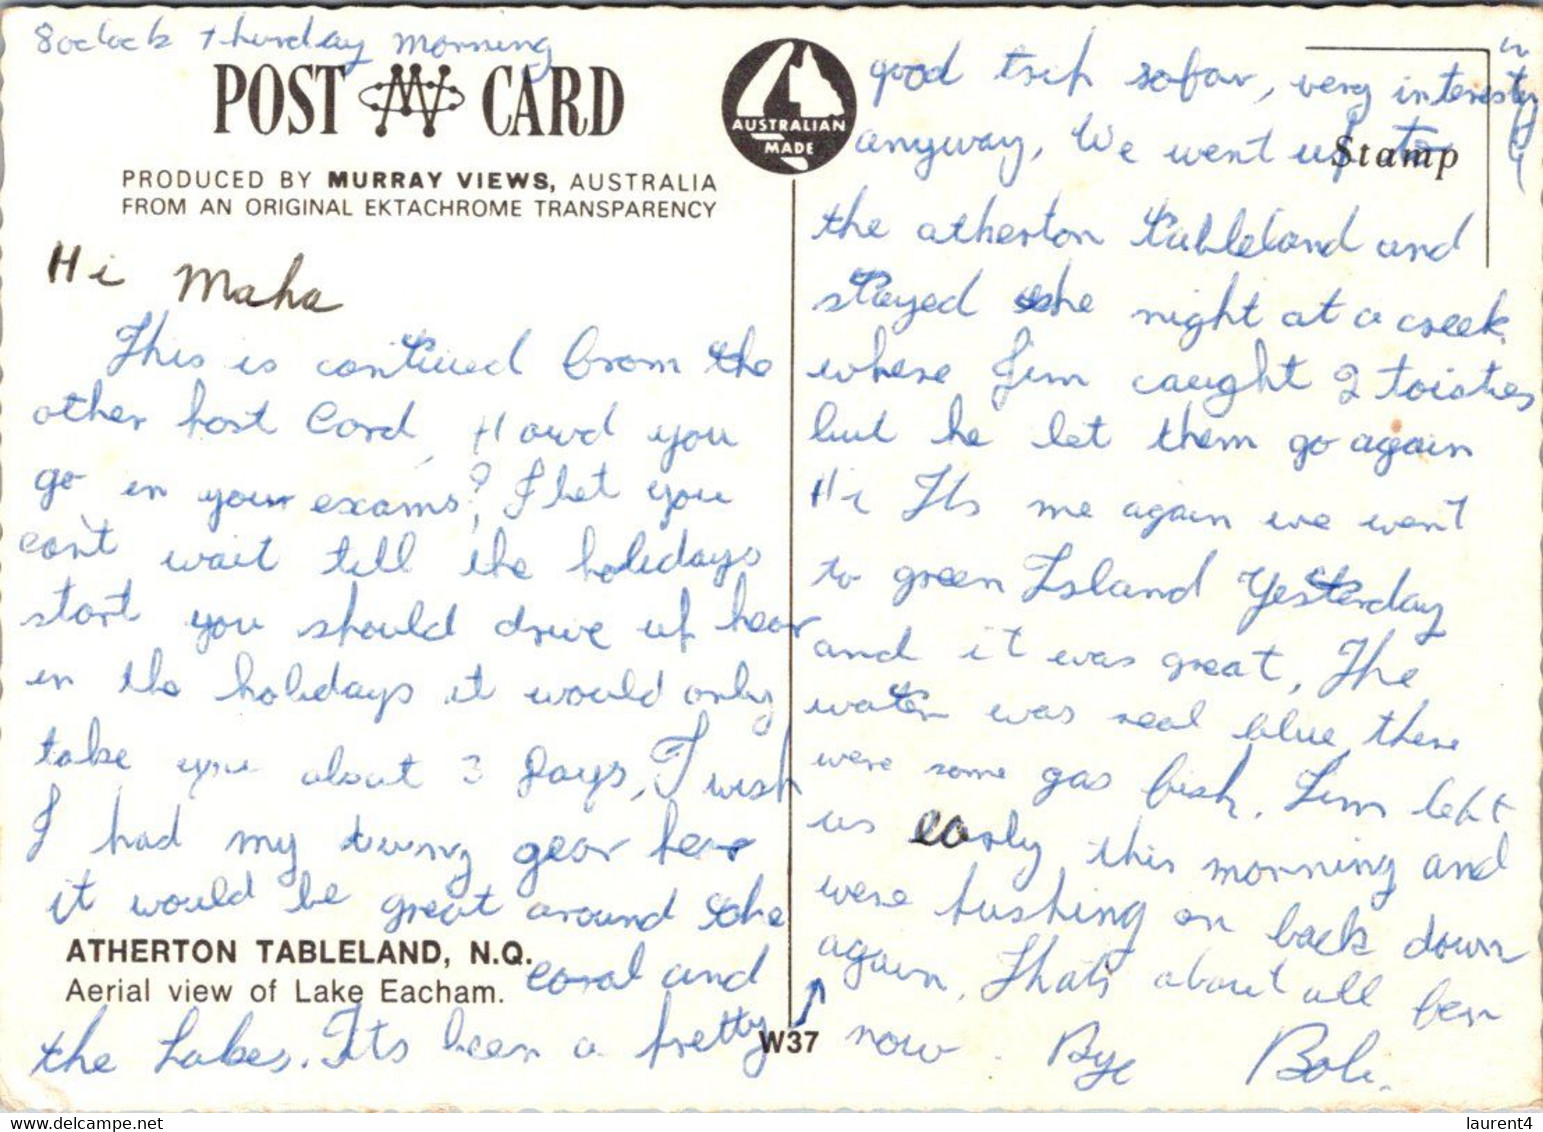 8oclock thurday morning
POST CARD
AUSTRALIAN
MADE
PRODUCED BY MURRAY VIEWS, AUSTRALIA
FROM AN ORIGINAL EKTACHROME TRANSPARENCY
Hi Maha
This is contiued from the
other post Card, Howd you
go in your exams? I bet you
can't wait till the holidays
start you should drive up hear
in the holidays it would only
take you about 3 days, I wish
I had my diving gear hear
it would be great around the
coral and
the Lakes. Its been a pretty
ATHERTON TABLELAND, N.Q.
Aerial view of Lake Eacham.
W37
Stamp
good trip sofar, very interesting
anyway, We went up to
the atherton tableland and
stayed the night at a creek
where Jim caught 2 toisties
but he let them go again
Hi Its me again we went
to green Island Yesterday
and it was great, The
water was real blue, there
were some gas fish. Jim left
us early this morning and
were pushing on back down
again. Thats about all for
now. Bye Bob.
laurent4
www.delcampe.net